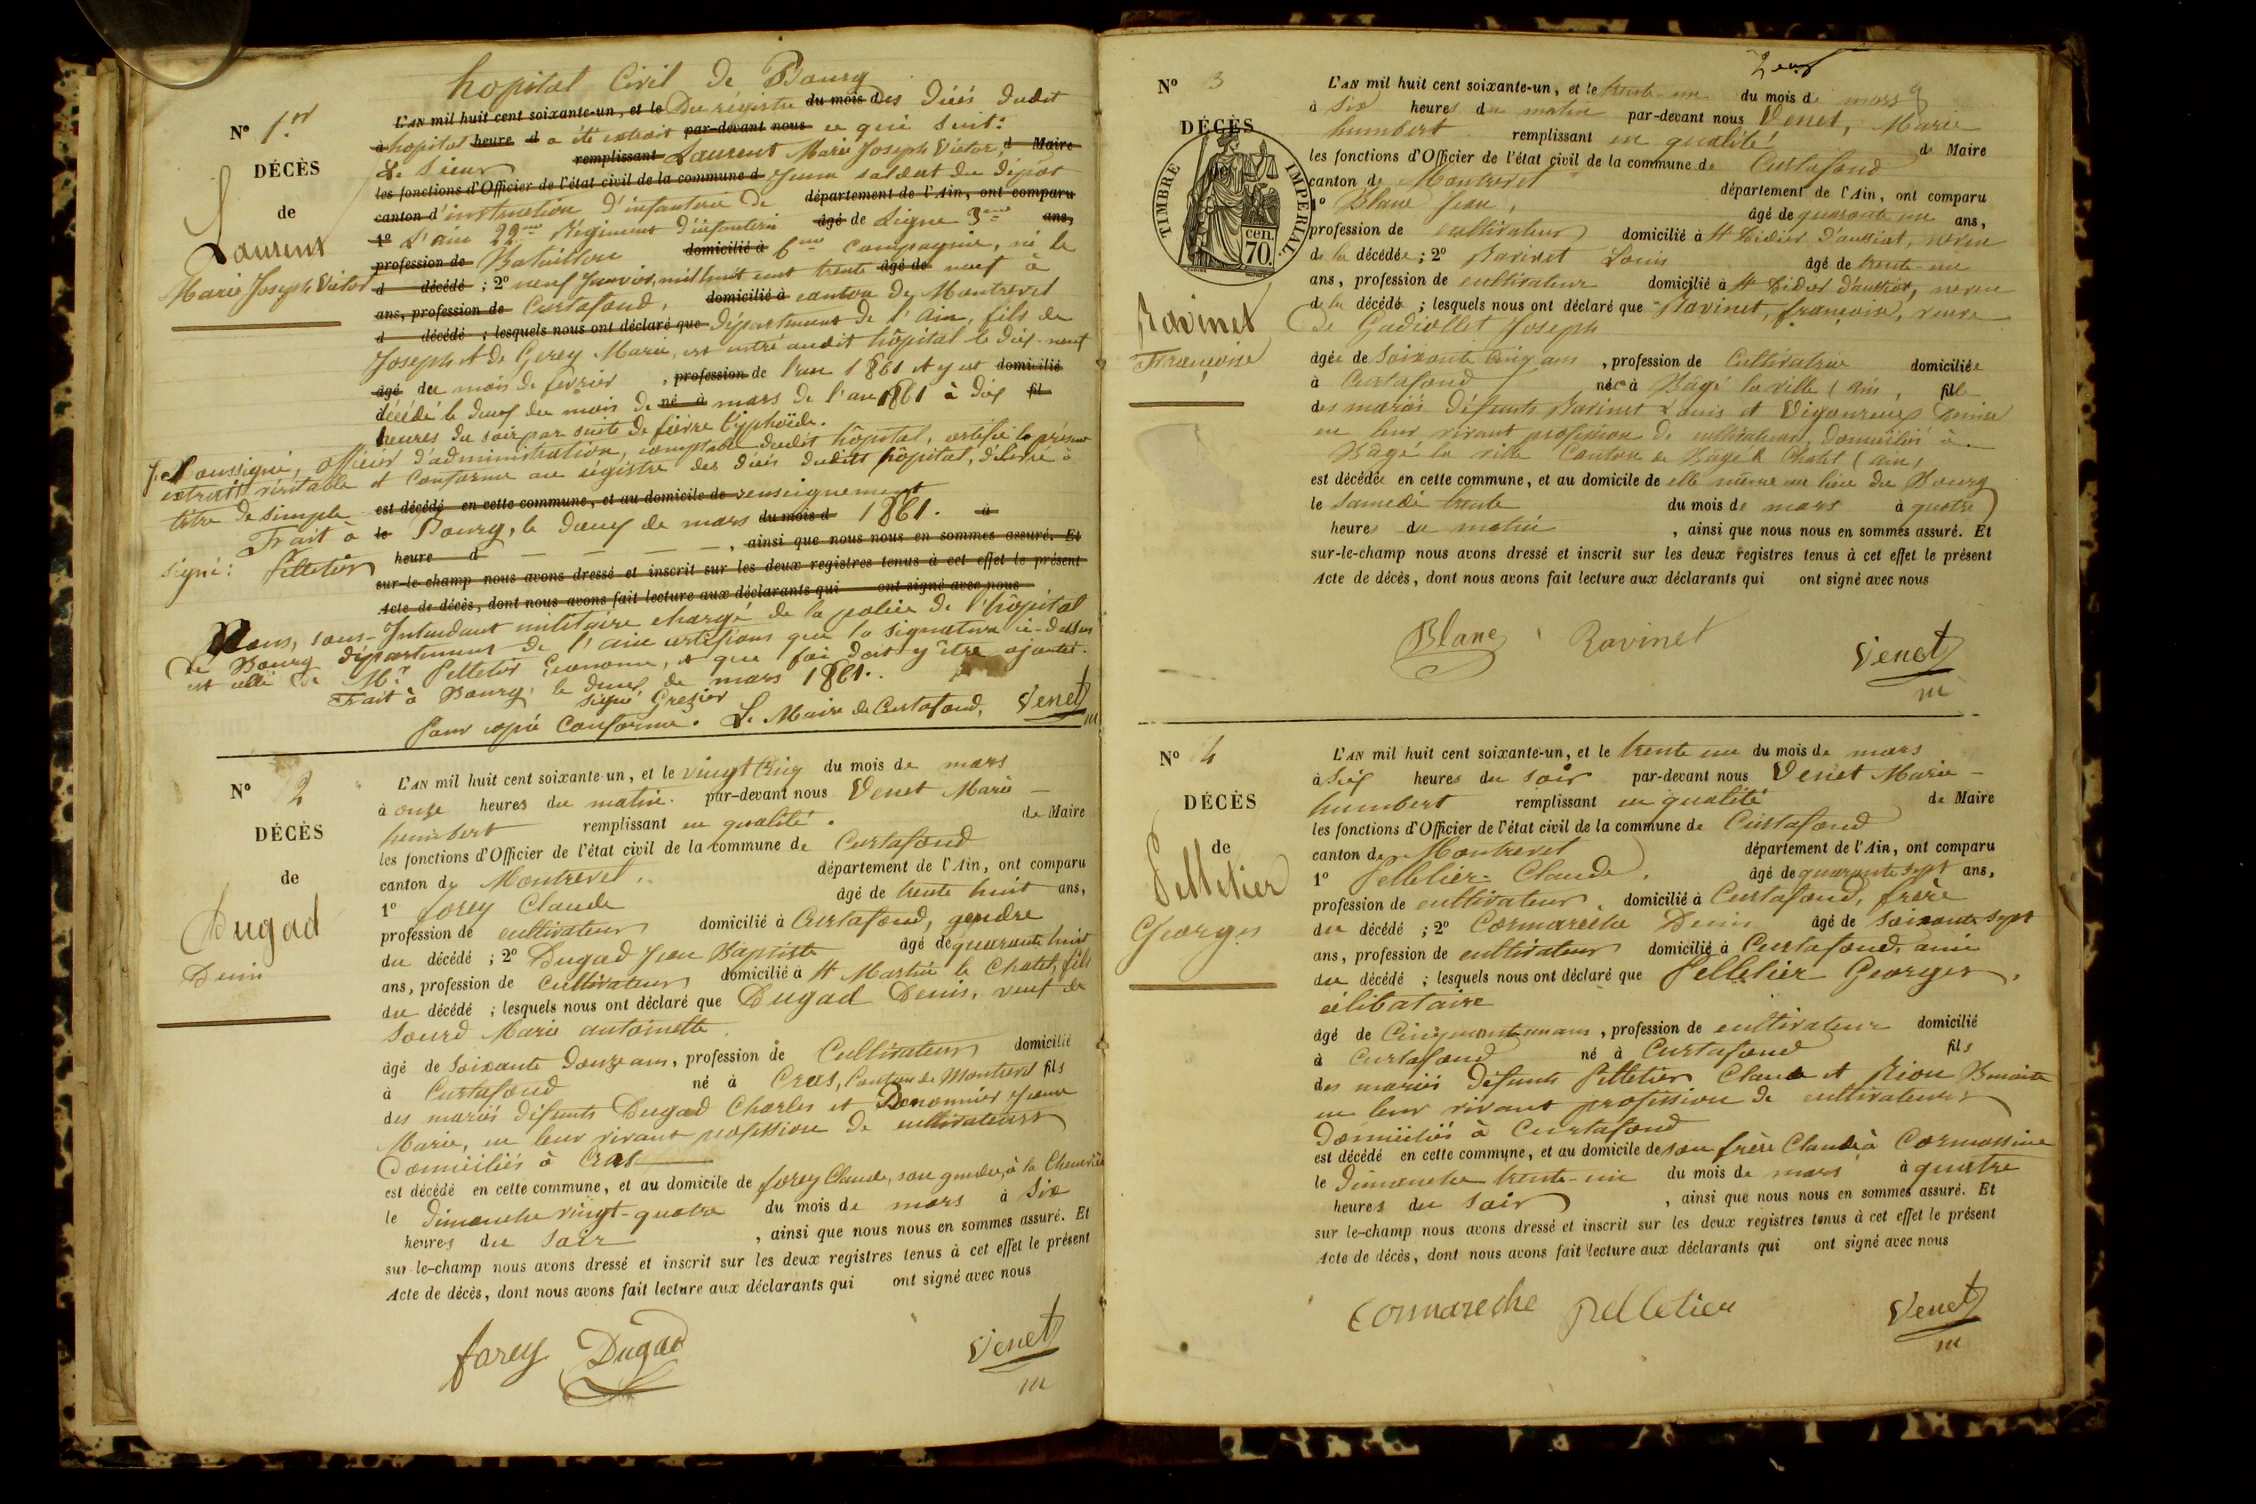 hopital Civil de Bourg
N° 1er
L'AN mil huit cent soixante-un, et le Du régistre du mois des décès dudit
à hopital heure d a été extrait par-devant nous ce qui suit:
DÉCÈS
Le Sieur remplissant Laurent Marie Joseph Victor, d Maire
les fonctions d'Officier de l'état civil de la commune d jeune soldat du dépôt
de
canton d'instruction d'infanterie de département de l'Ain, ont comparu
1° L'ain 22me Régiment d'infanterie âgé de Ligne 3me ans,
Laurent
profession de Bataillon domicilié à 6me compagnie, né le
Marie Joseph Victor
d décédé ; 2° neuf Janvier, mil huit cent trente âgé de neuf à
ans, profession de Curtafond, domicilié à canton de Montrevel
d décédé ; lesquels nous ont déclaré que département de l'Ain, fils de
Joseph et de Gerey Marie, est entré audit hôpital le dix-neuf
âgé du mois de fevrier , profession de l'an 1861 et y est domicilié
décédé le deux du mois de né à mars de l'an 1861 à dix fil
heures du soir par suite de fièvre typhoïde.
Je soussigné, officier d'administration, comptable dudit hôpital, certifie le présent
extrait véritable et conforme au régistre des décès dudit hôpital, délivré à
titre de simple est décédé en cette commune, et au domicile de renseignement
Fait à le Bourg, le deux de mars du mois d 1861. à
signé: Pelletier heure d , ainsi que nous nous en sommes assuré. Et
sur-le-champ nous avons dressé et inscrit sur les deux registres tenus à cet effet le présent
Acte de décès, dont nous avons fait lecture aux déclarants qui ont signé avec nous
Nous, sous-Intendant militaire chargé de la police de l'hôpital
de Bourg département de l'ain certifions que la signature ci-dessus
est celle de Mr Pelletier Econome, et que foi doit y être ajoutée.
Fait à Bourg, le deux de mars 1861.
signé Grezier
Pour copie conforme. Le Maire de Curtafond, Venet
m
N° 2
L'AN mil huit cent soixante-un, et le vingt cinq du mois de mars
à onze heures du matin. par-devant nous Venet Marie
DÉCÈS
humbert remplissant en qualité. de Maire
les fonctions d'Officier de l'état civil de la commune de Curtafond
de
canton de Montrevel, département de l'Ain, ont comparu
1° forey Claude âgé de trente huit ans,
Dugad
profession de cultivateur domicilié à Curtafond, gendre
Denis
du décédé ; 2° Dugad Jean Baptiste âgé de quarante huit
ans, profession de Cultivateur domicilié à St Martin le Chatel, fils
du décédé ; lesquels nous ont déclaré que Dugad Denis, veuf de
Sourd Marie antoinette
âgé de soixante douze ans, profession de Cultivateur domicilié
à Curtafond né à Cras, Canton de Montrevel fils
des mariés défunts Dugad Charles et Renonnier Jeanne
Marie, en leur vivant profession de cultivateurs
domiciliés à Cras
est décédé en cette commune, et au domicile de forey Claude, son gendre, à la
le dimanche vingt-quatre du mois de mars à six
heures du soir , ainsi que nous nous en sommes assuré. Et
sur-le-champ nous avons dressé et inscrit sur les deux registres tenus à cet effet le présent
Acte de décès, dont nous avons fait lecture aux déclarants qui ont signé avec nous
forey Dugad Venet
m
N° 3
L'AN mil huit cent soixante-un, et le trente-un du mois de mars
à six heures du matin par-devant nous Venet, Marie
DÉCÈS
humbert remplissant en qualité de Maire
les fonctions d'Officier de l'état civil de la commune de Curtafond
TIMBRE IMPERIAL.
cen. 70.
canton de Montrevel département de l'Ain, ont comparu
1° Blanc Jean, âgé de quarante un ans,
profession de cultivateur domicilié à St Didier d'aussiat, neveu
de la décédée ; 2° Ravinet Louis âgé de trente-un
ans, profession de cultivateur domicilié à St Didier d'aussiat, neveu
Ravinet
de la décédé ; lesquels nous ont déclaré que Ravinet, françoise, veuve
de Gadiollet Joseph
Françoise
âgée de soixante cinq ans , profession de Cultivatrice domiciliée
à Curtafond née à Bâgé la ville (ain, fil
des mariés défunts Ravinet Louis et Denise
en leur vivant profession de cultivateurs, domiciliés à
Bâgé la ville Canton de Bâgé le Chatel (ain)
est décédée en cette commune, et au domicile de elle même au lieu du Bourg
le samedi trente du mois de mars à quatre
heures du matin , ainsi que nous nous en sommes assuré. Et
sur-le-champ nous avons dressé et inscrit sur les deux registres tenus à cet effet le présent
Acte de décès, dont nous avons fait lecture aux déclarants qui ont signé avec nous
Blanc Ravinet Venet
m
N° 4
L'AN mil huit cent soixante-un, et le trente un du mois de mars
à six heures du soir par-devant nous Venet Marie
DÉCÈS
humbert remplissant en qualité de Maire
les fonctions d'Officier de l'état civil de la commune de Curtafond
de
canton de Montrevel département de l'Ain, ont comparu
Pelletier
1° Pelletier Claude, âgé de quarante sept ans,
profession de cultivateur, domicilié à Curtafond, frère
Georges
du décédé ; 2° Cormareche Denis âgé de soixante sept
ans, profession de cultivateur domicilié à Curtafond, ami
du décédé ; lesquels nous ont déclaré que Pelletier Georges,
célibataire
âgé de Cinquante un ans , profession de cultivateur domicilié
à Curtafond né à Curtafond fils
des mariés défunts Pelletier Claude et Rion Benoite
en leur vivant profession de cultivateurs
domiciliés à Curtafond
est décédé en cette commune, et au domicile de son frère Claude à
le dimanche trente-un du mois de mars à quatre
heures du soir , ainsi que nous nous en sommes assuré. Et
sur le-champ nous avons dressé et inscrit sur les deux registres tenus à cet effet le présent
Acte de décès, dont nous avons fait lecture aux déclarants qui ont signé avec nous
Cormareche Pelletier Venet
m